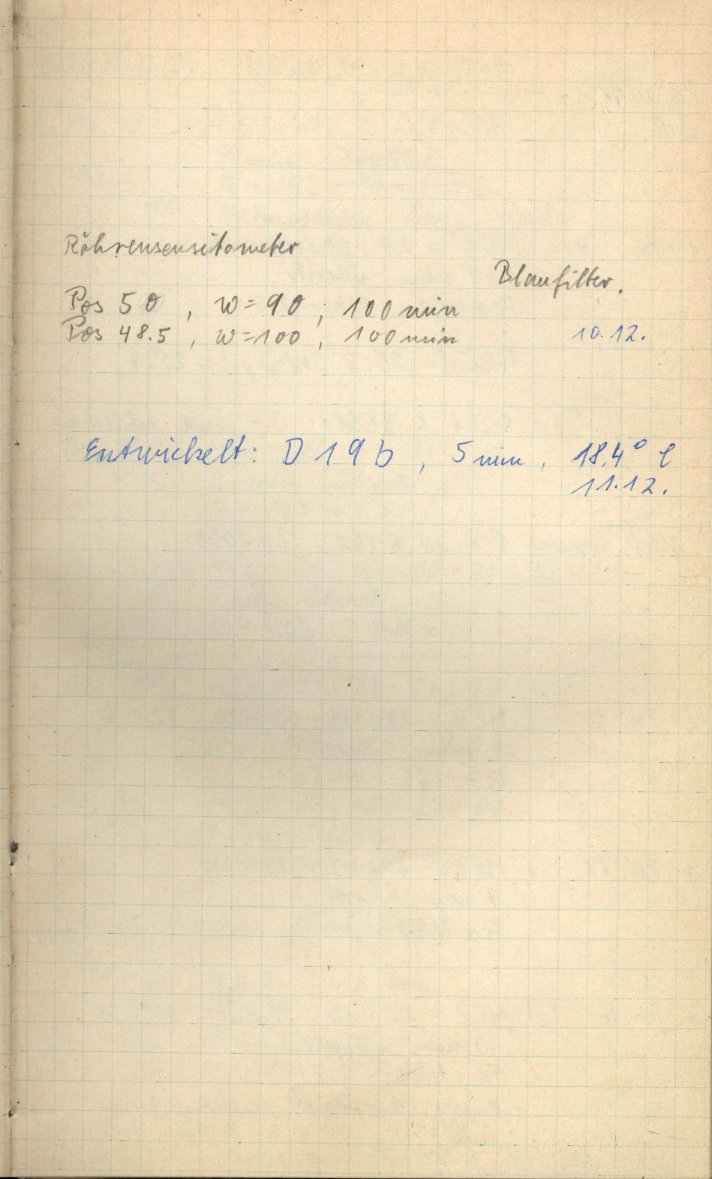 Röhrensensitometer
Blaufilter.
Pos 50, w=90, 100 min
Pos 48.5, w=100, 100 min 10.12.
Entwickelt: D 19 b, 5 min, 18.4° C
11.12.